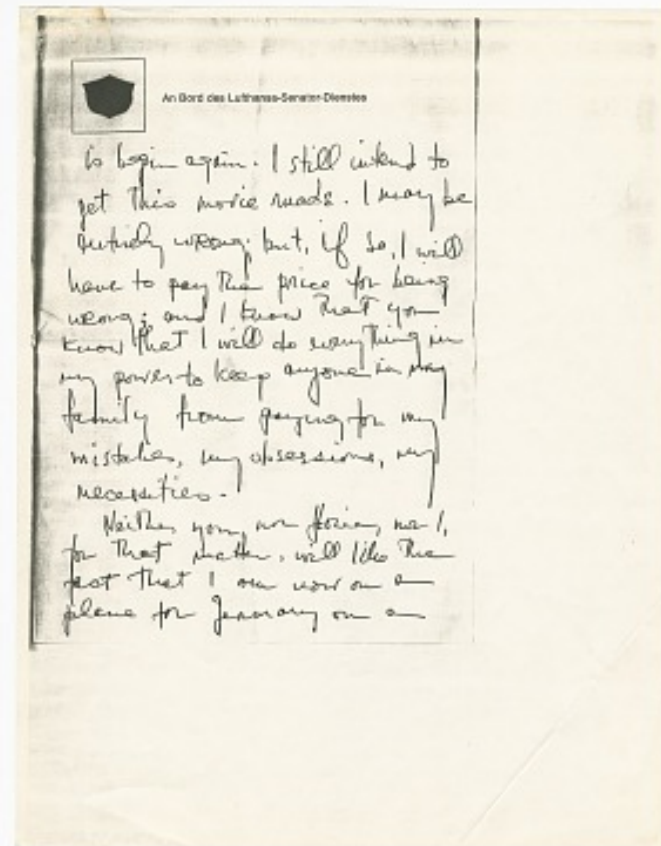 An Bord des Lufthansa-Senator-Dienstes
to begin again. I still intend to
get this movie made. I may be
entirely wrong; but, if so, I will
have to pay the price for being
wrong; and I know that you
know that I will do everything in
my power to keep anyone in my
family from paying for my
mistakes, my obsessions, my
necessities.
Neither you, nor Gloria, nor I,
for that matter, will like the
fact that I am now on a
plane for Germany on an